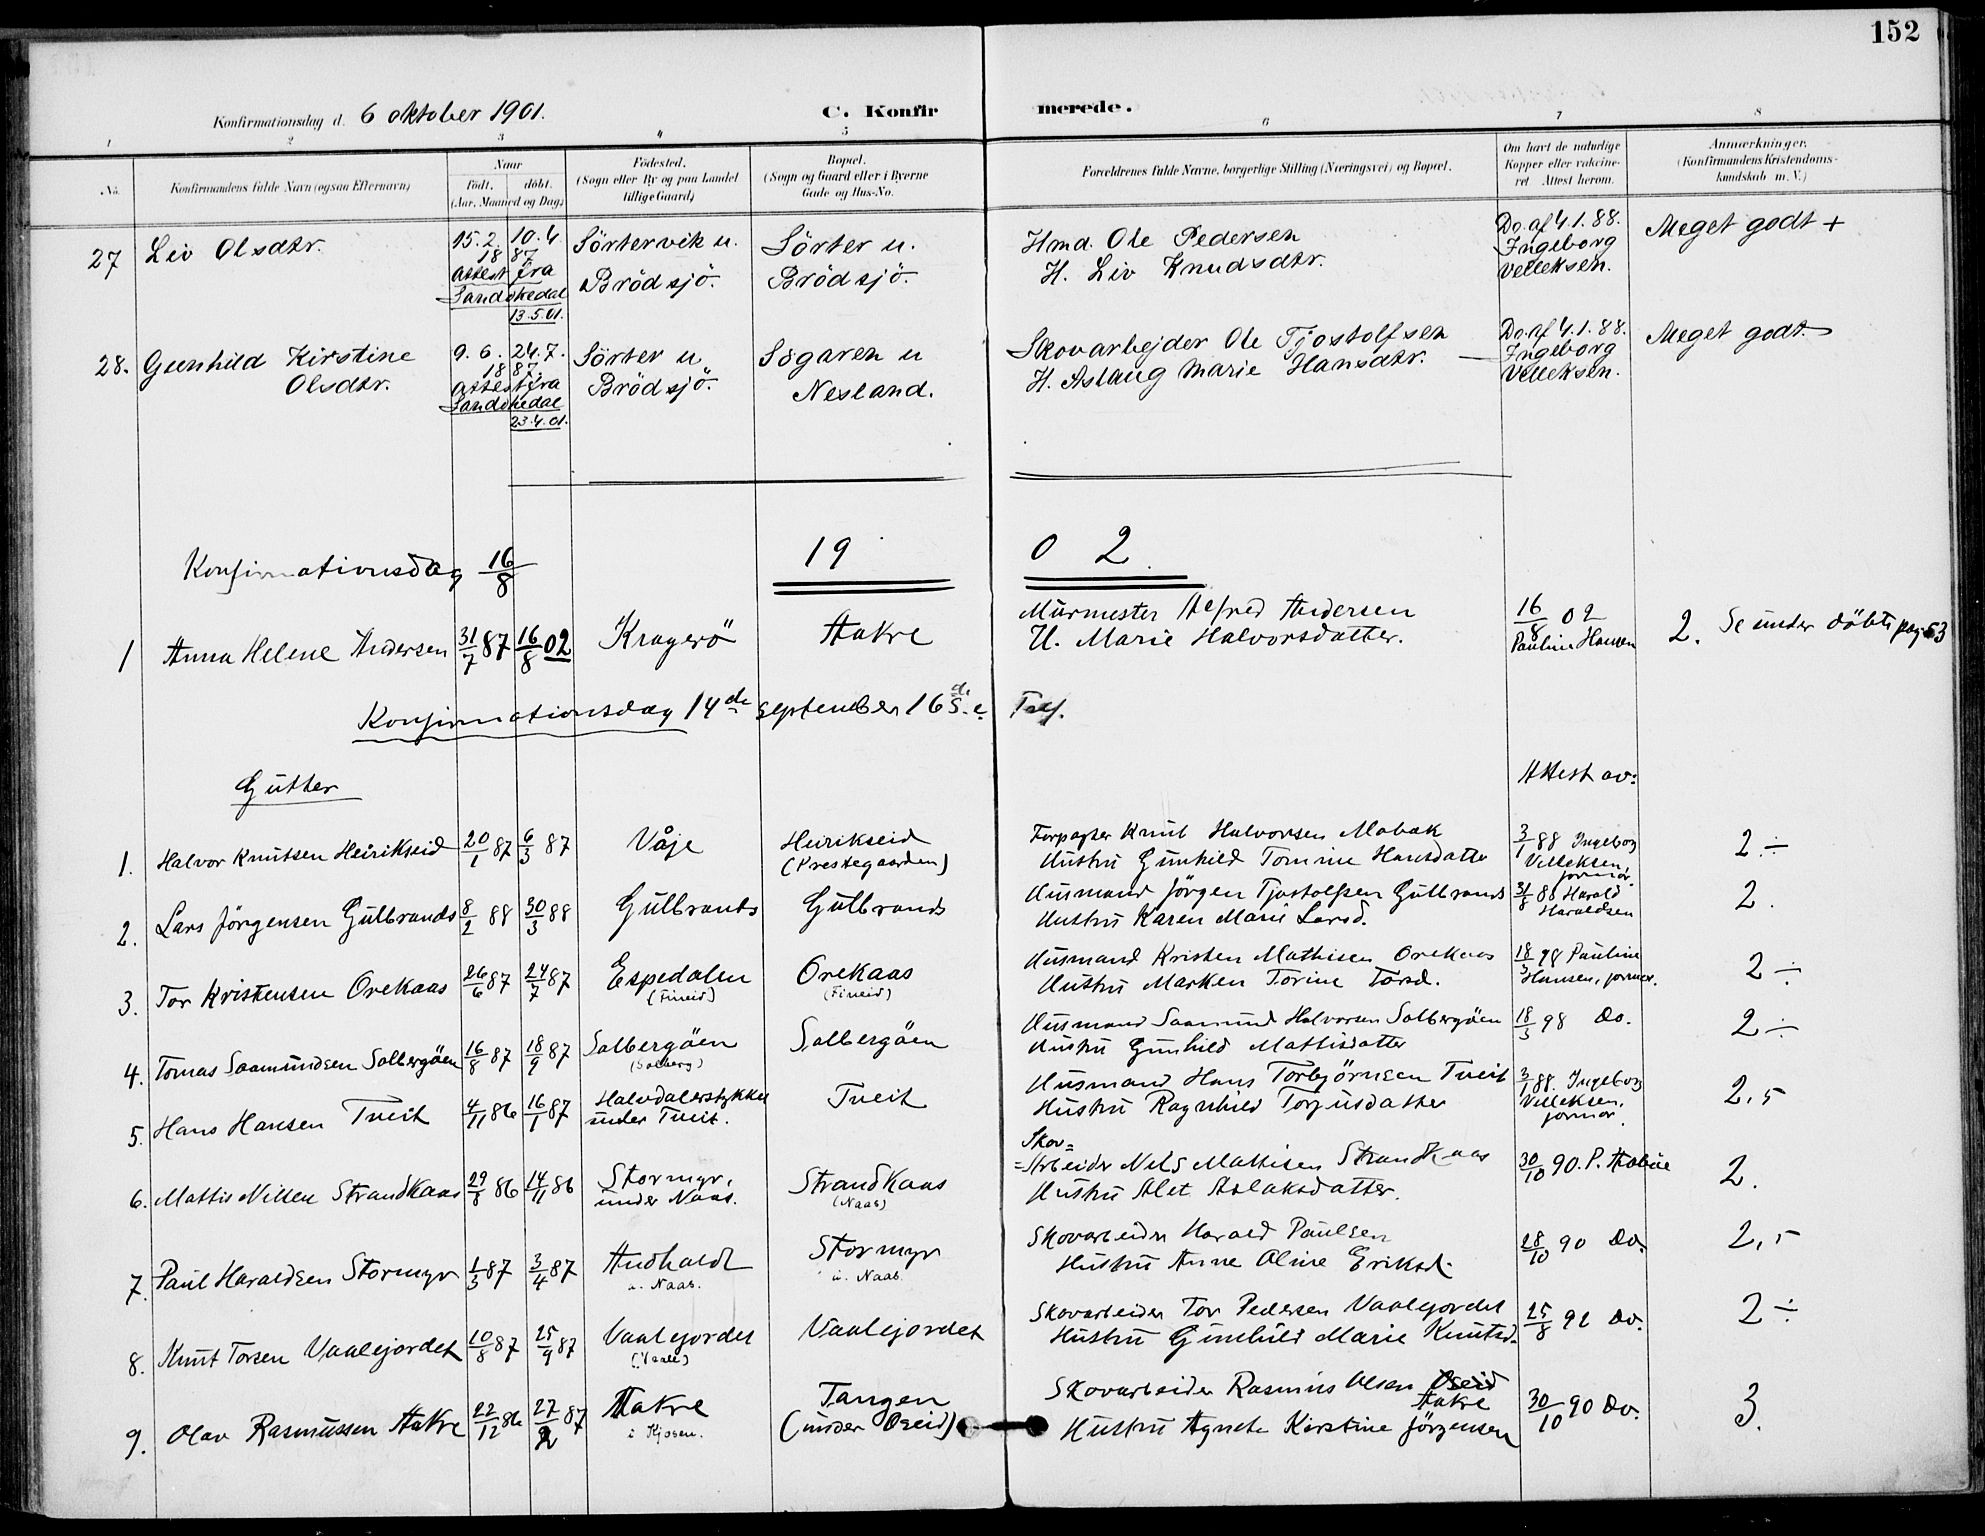 152
Konfirmationsdag d. 6 oktober 1901.
C. Konfirmerede.
1 2 3 4 5 6 7 8
No.
Konfirmandens fulde Navn (ogsaa Efternavn)
Naar
født. døbt.
(Aar, Maaned og Dag)
Fødested.
(Sogn eller By og paa Landet
tillige Gaard)
Bopæl.
(Sogn og Gaard eller i Byerne
Gade- og Hus-No.
Forældrenes fulde Navne, borgerlige Stilling (Næringsvei) og Bopæl.
Om havt de naturlige
Kopper eller vakcine-
ret. Attest herom.
Anmærkninger.
(Konfirmandens Kristendoms-
kundskab m. V.)
27 Liv Olsdtr. 15.2. 10.4. Sörtervik u. Sörter u. Hmd. Ole Pedersen Do. af 4.1.88. Meget godt +
18 87 Brödsjö. Brödsjö. H. Liv Knudsdtr. Ingeborg
attest fra Velleksen.
Sandökedal
13.5.01.
28. Gunhild Kirstine 9.6. 24.7. Sörter u. Sögaren u Skovarbejder Ole Tjostolfsen Do. af 4.1.88. Meget godt
Olsdtr. 18 87. Brödsjö. Nesland. H. Aslaug Marie Hansdtr. Ingeborg
attest fra Velleksen.
Sandökedal
23.4.01.
Konfirmationsdag 16/8 19 02
1 Anna Helene Andersen 31/7 87 16/8 02 Kragerö Aakre Murmester Alfred Andersen 16/8 02 2. Se under döbte pag 53
H. Marie Halvorsdatter. Pauline Hansen
Konfirmationsdag 14de september 16 S. e. Tref.
Gutter
Attest av:
1. Halvor Knutsen Heirikseid 20/1 87 6/3 87 Våje Heirikseid Forpagter Knut Halvorsen Mobæk 3/1 88 Ingeborg 2.÷
(Prestegaarden) Hustru Gunhild Tomine Hansdatter Velleksen, jormor.
2. Lars Jörgensen Gulbrands 8/2 88 30/3 88 Gulbrands Gulbrands Husmand Jörgen Tjostolfsen Gulbrands 31/8 88 Harald 2.
Hustru Karen Marie Larsd. Haraldsen
3. Tor Kristensen Orekaas 26/6 87 24/7 87 Espedalen Orekaas Husmand Kristen Mathisen Orekaas 18/3 98 Pauline 2÷
(Fineid) (Fineid) Hustru Marken Torine Torsd. Hansen, jormor.
4. Tomas Saamundsen Solbergöen 16/8 87 18/9 87 Solbergöen Solbergöen Husmand Saamund Halvorsen Solbergöen 18/3 98 Do. 2÷
(Solberg) Hustru Gunhild Mattisdatter
5. Hans Hansen Tveit 4/11 86 16/1 87 Halvdalerstykket Tveit Husmand Hans Torbjörnsen Tveit 3/1 88. Ingeborg 2,5
under Tveit. Hustru Ragnhild Torjusdatter Velleksen, jormor.
6. Mattis Nilsen Strandkaas 29/8 86 14/11 86 Stormyr, Strandkaas Skov=
under Naas. (Naas) =Arbeider Nels Mattisen Strandkaas 30/10 90. P. Aabøe 2.
Hustru Alet Aslaksdatter.
7. Paul Haraldsen Stormyr 1/3 87 3/4 87 Andhaldt Stormyr Skovarbeider Harald Paulsen 28/10 90 Do. 2,5
u. Naas. u. Naas. Hustru Anne Oline Eriksd.
8. Knut Torsen Vaalejordet 10/8 87 25/9 87 Vaalejordet Vaalejordet Skovarbeider Tor Pedersen Vaalejordet 25/8 92 Do. 2÷
(Vaale) Hustru Gunhild Marie Knutsd.
9. Olav Rasmussen Aakre 22/12 86 27/2 87 Aakre Tangen Skovarbeider Rasmus Olsen Aakre 30/10 90 Do. 3.
i Kjosen. (under Oseid) Hustru Agnete Kirstine Jörgensen